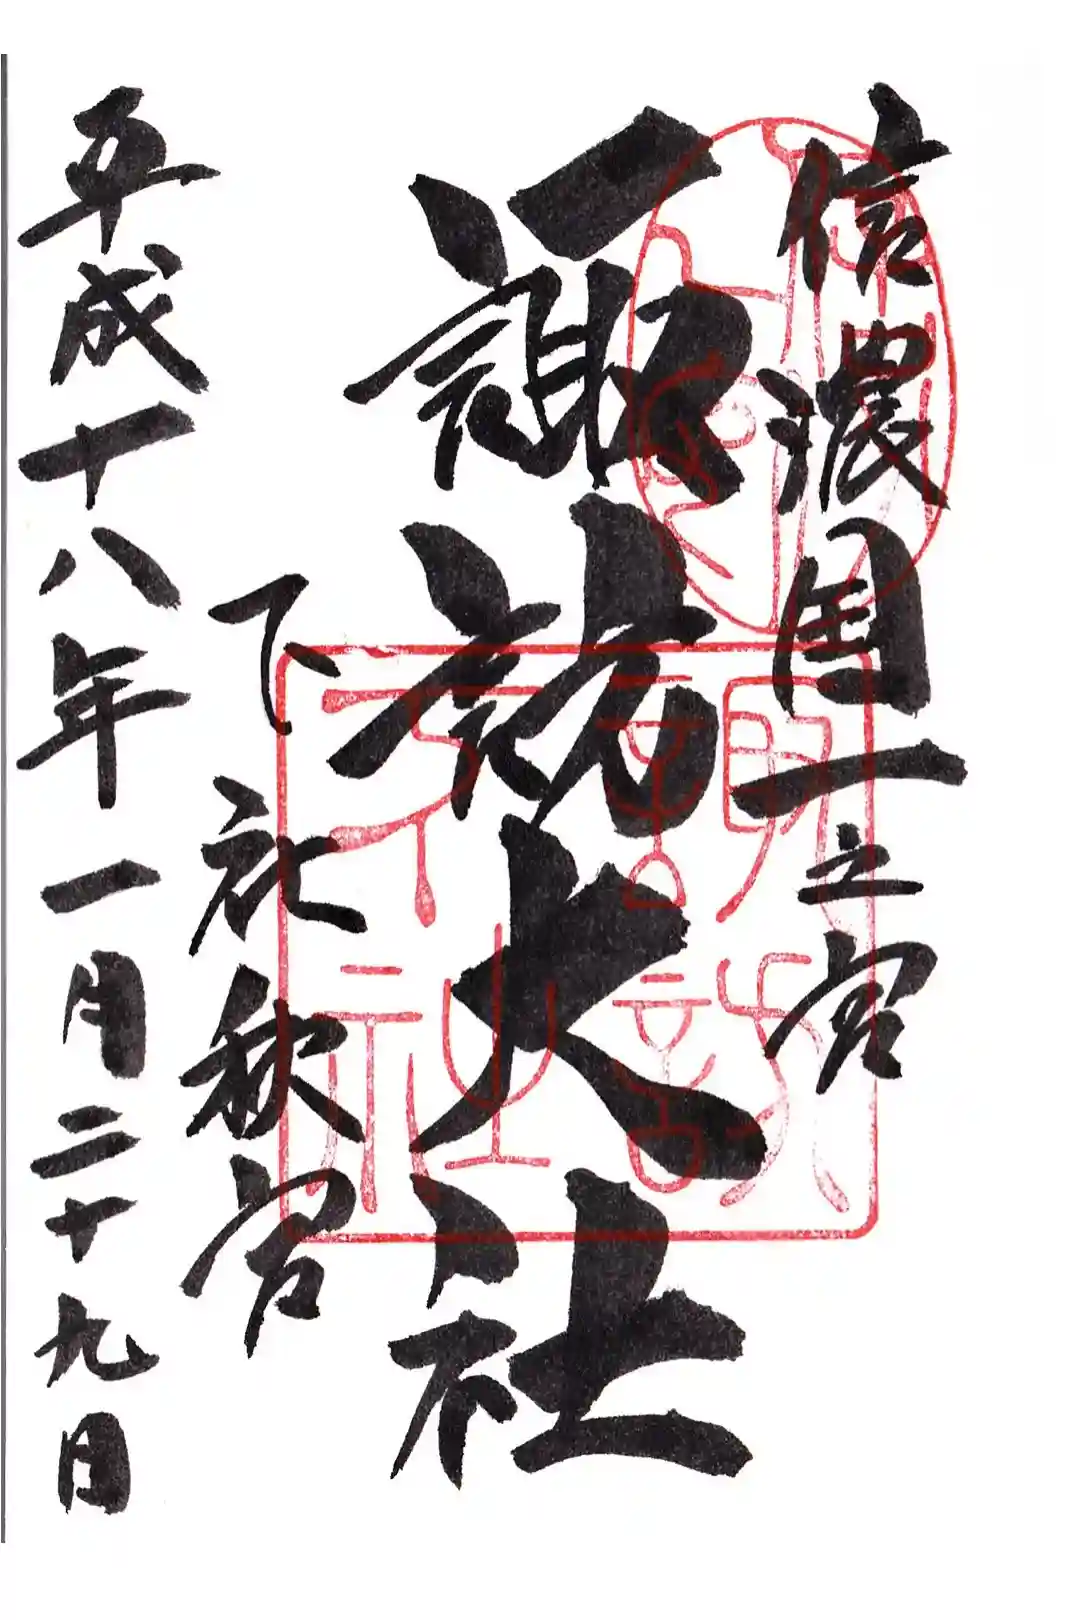 信濃国一之宮
諏訪大社
下社秋宮
平成十八年一月二十九日